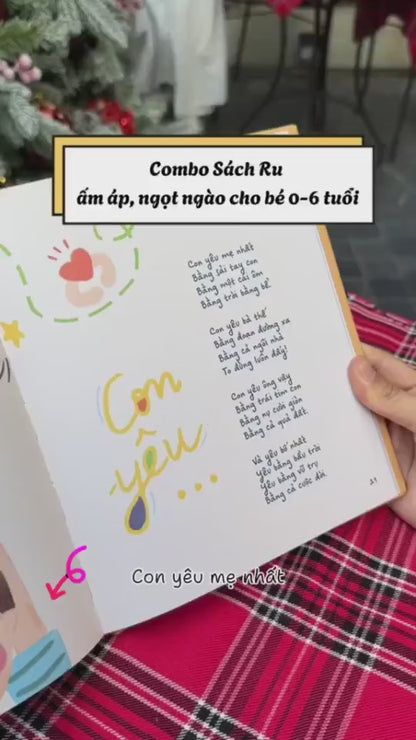 Combo Sách Ru
ấm áp, ngọt ngào cho bé 0-6 tuổi
Con yêu mẹ nhất
Bằng cái tay con
Bằng một cái ôm
Bằng trời bằng bể
Con yêu bà thế
Bằng đoạn đường xa
Bằng cả ngôi nhà
To đùng luôn đấy!
Con yêu ông vậy
Bằng trái tim con
Bằng nụ cười giòn
Bằng cả quả đất.
Và yêu bố nhất
Yêu bằng bầu trời
Yêu bằng vũ trụ
Bằng cả cuộc đời.
Con
yêu
...
21
Con yêu mẹ nhất